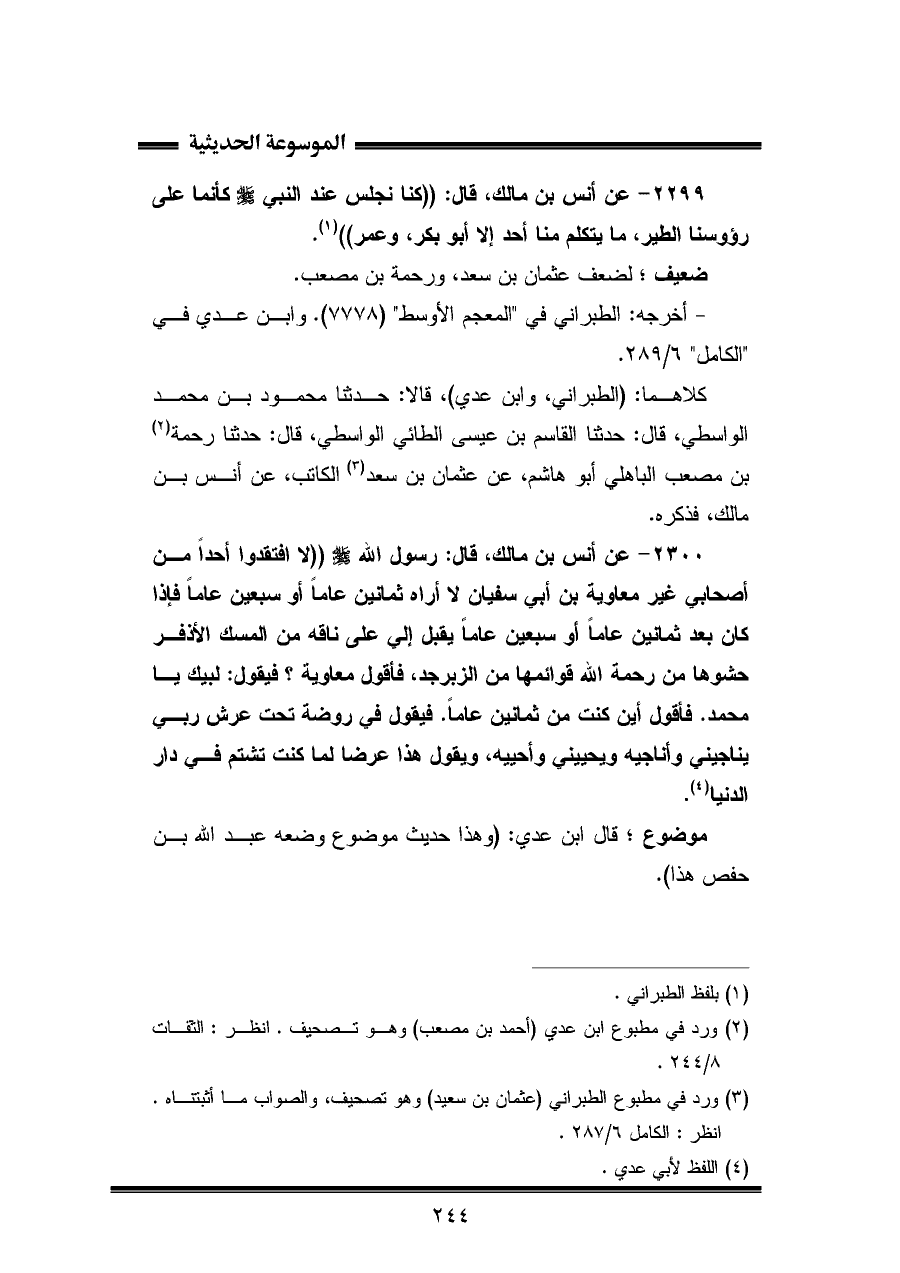 الموسوعة الحديثية
٢٢٩٩- عن أنس بن مالك، قال: ((كنا نجلس عند النبي ﷺ كأنما على
رؤوسنا الطير، ما يتكلم منا أحد إلا أبو بكر، وعمر))(١).
ضعيف ؛ لضعف عثمان بن سعد، ورحمة بن مصعب.
- أخرجه: الطبراني في "المعجم الأوسط" (٧٧٧٨). وابن عدي في
"الكامل" ٢٨٩/٦.
كلاهما: (الطبراني، وابن عدي)، قالا: حدثنا محمود بن محمد
الواسطي، قال: حدثنا القاسم بن عيسى الطائي الواسطي، قال: حدثنا رحمة(٢)
بن مصعب الباهلي أبو هاشم، عن عثمان بن سعد(٣) الكاتب، عن أنس بن
مالك، فذكره.
٢٣٠٠- عن أنس بن مالك، قال: رسول الله ﷺ ((لا افتقدوا أحداً من
أصحابي غير معاوية بن أبي سفيان لا أراه ثمانين عاماً أو سبعين عاماً فإذا
كان بعد ثمانين عاماً أو سبعين عاماً يقبل إلي على ناقه من المسك الأذفر
حشوها من رحمة الله قوائمها من الزبرجد، فأقول معاوية ؟ فيقول: لبيك يا
محمد. فأقول أين كنت من ثمانين عاماً. فيقول في روضة تحت عرش ربي
يناجيني وأناجيه ويحييني وأحييه، ويقول هذا عرضا لما كنت تشتم في دار
الدنيا(٤).
موضوع ؛ قال ابن عدي: (وهذا حديث موضوع وضعه عبد الله بن
حفص هذا).
(١) بلفظ الطبراني .
(٢) ورد في مطبوع ابن عدي (أحمد بن مصعب) وهو تصحيف . انظر : الثقات
٢٤٤/٨ .
(٣) ورد في مطبوع الطبراني (عثمان بن سعيد) وهو تصحيف، والصواب ما أثبتناه .
انظر : الكامل ٢٨٧/٦ .
(٤) اللفظ لأبي عدي .
٢٤٤